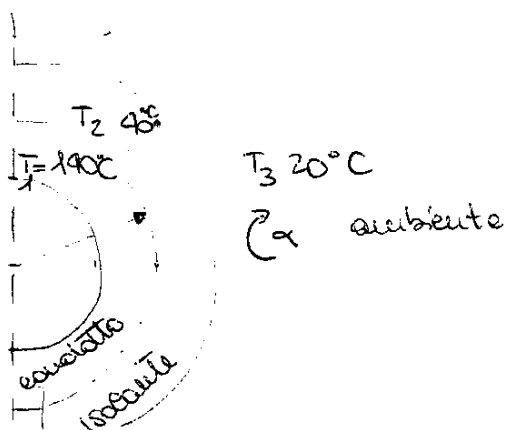 T₂ 40°C
T₁=140°C
T₃ 20°C
α ambiente
condotto
isolante